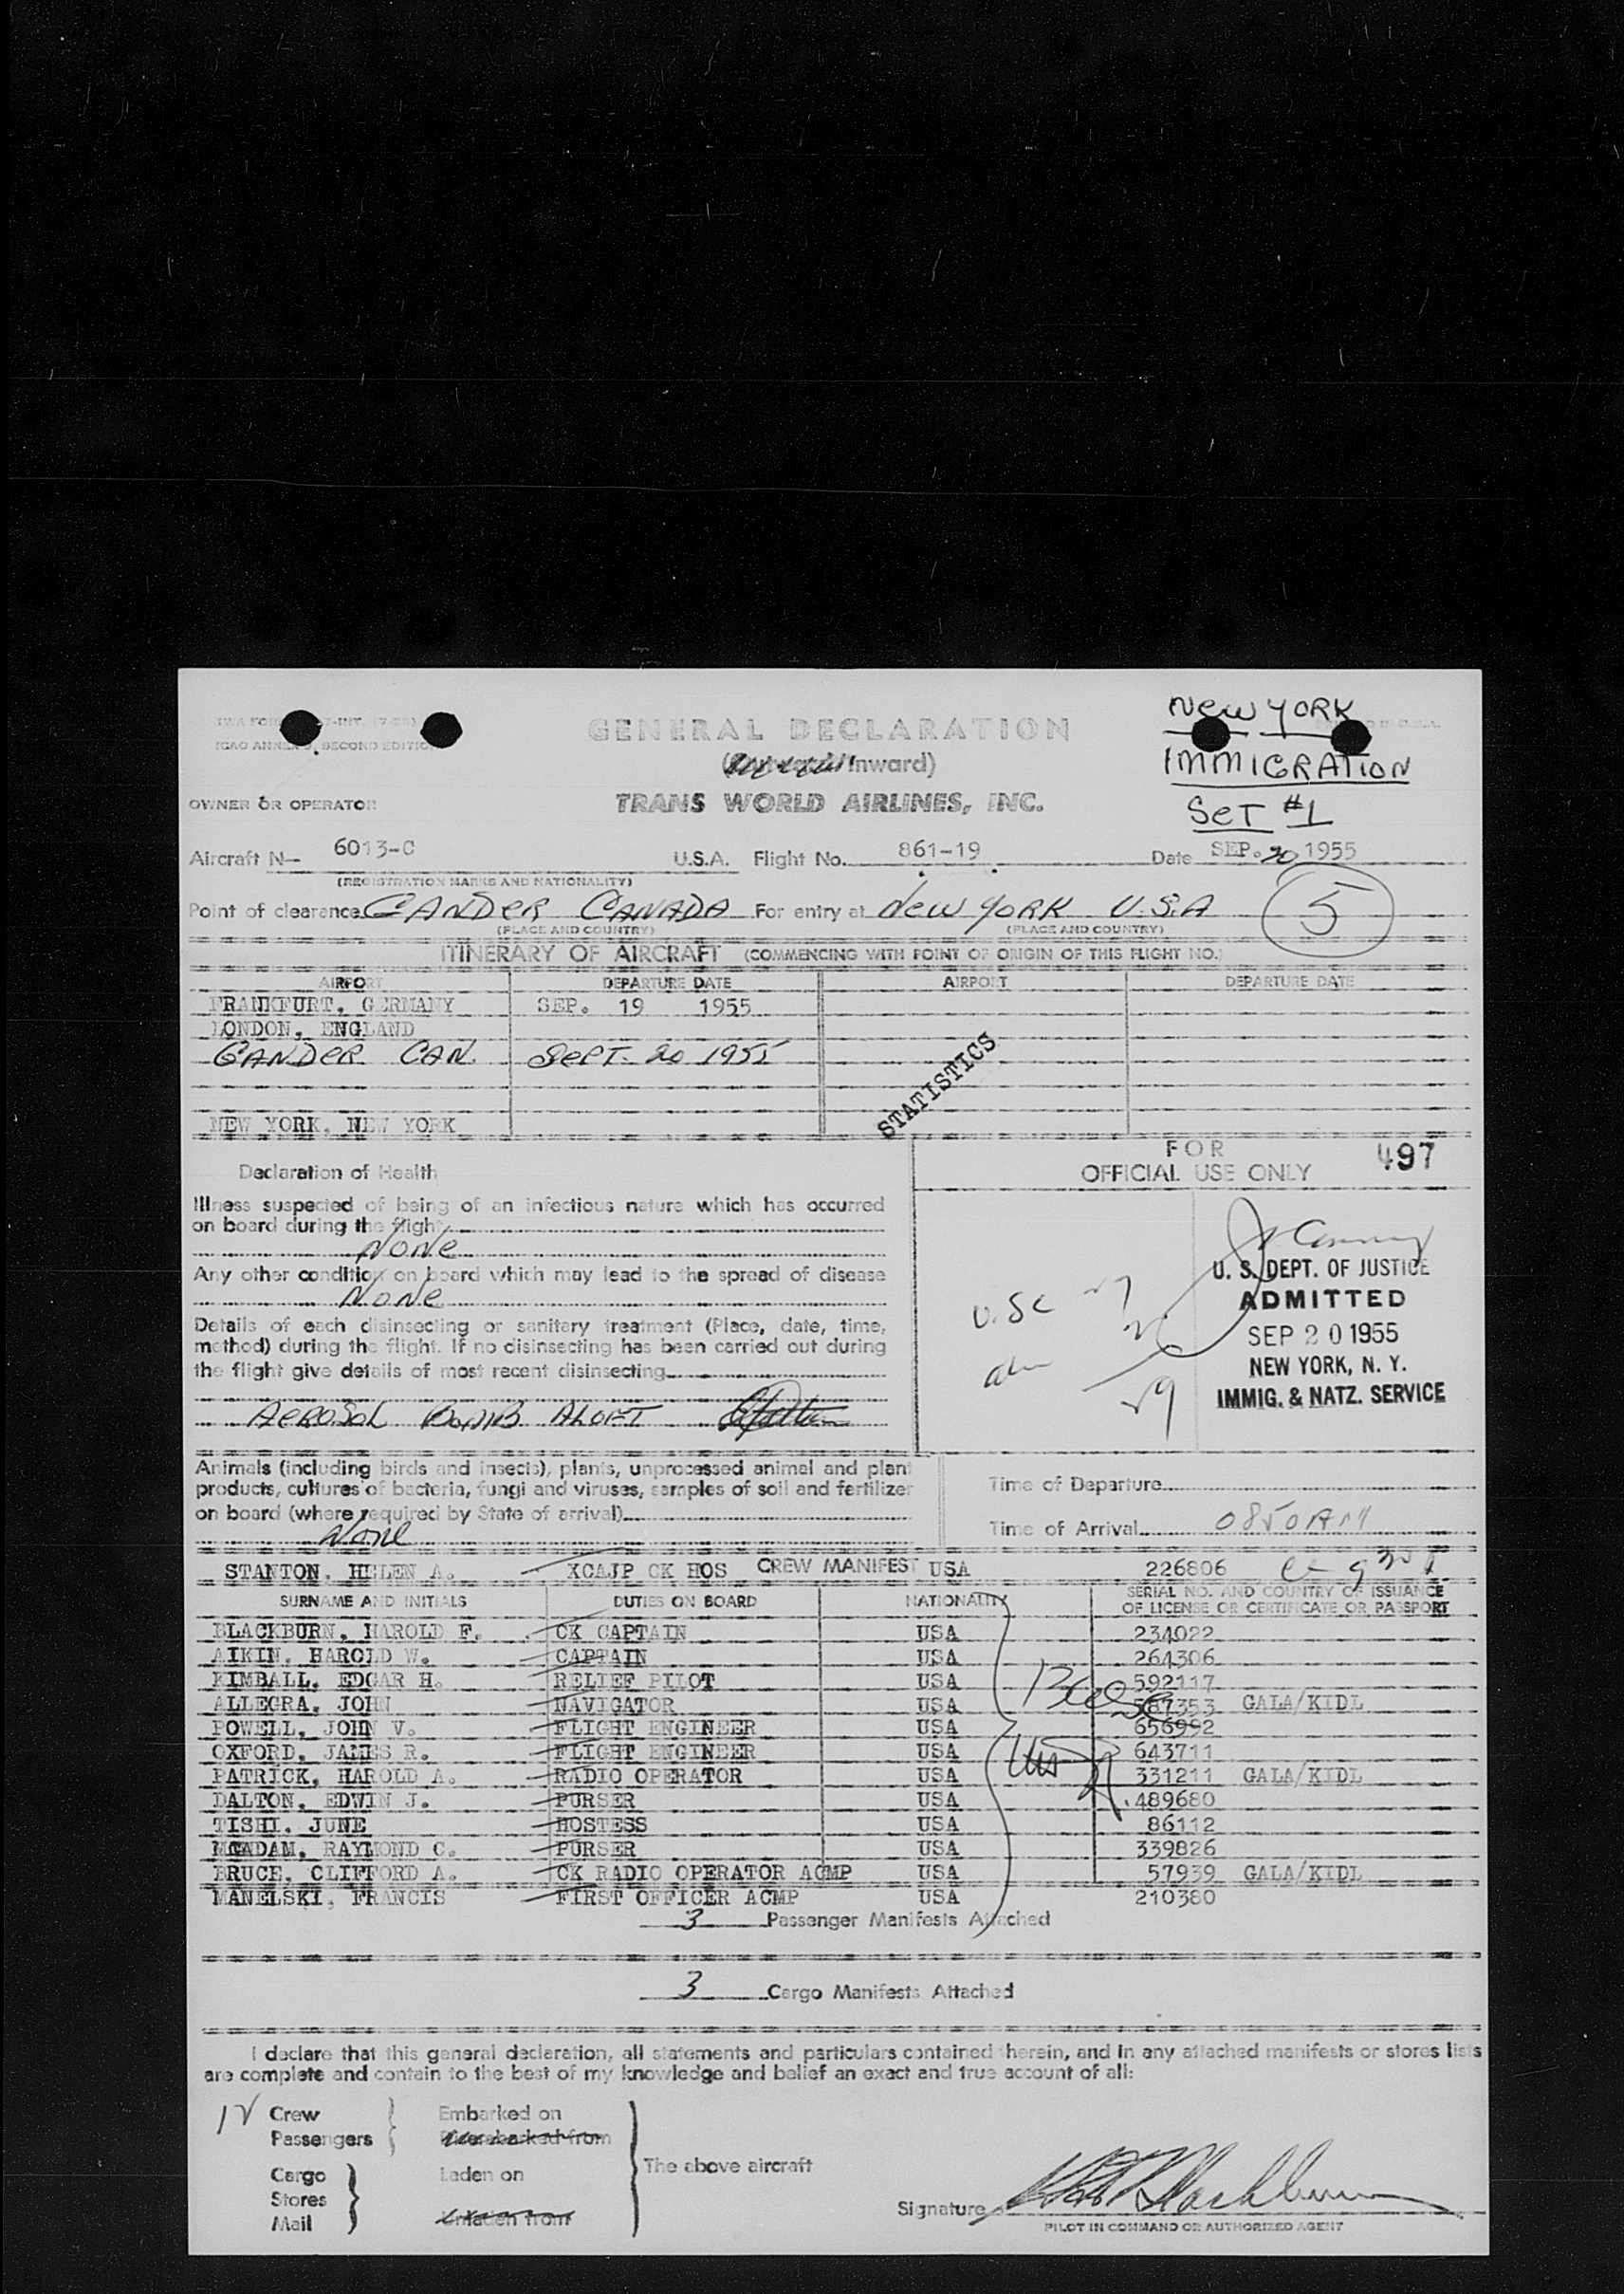 GENERAL DECLARATION
NEW YORK
ICAO ANNEX 9, SECOND EDITION
Inward)
IMMIGRATION
OWNER OR OPERATOR
TRANS WORLD AIRLINES, INC.
SET #1
Aircraft N- 6013-C U.S.A. Flight No. 861-19 Date SEP. 20 1955
(REGISTRATION MARKS AND NATIONALITY)
Point of clearance GANDER CANADA For entry at NEW YORK U.S.A 5
(PLACE AND COUNTRY) (PLACE AND COUNTRY)
ITINERARY OF AIRCRAFT (COMMENCING WITH POINT OF ORIGIN OF THIS FLIGHT NO.)
AIRPORT DEPARTURE DATE AIRPORT DEPARTURE DATE
FRANKFURT, GERMANY SEP. 19 1955
LONDON, ENGLAND
GANDER CAN. SEPT. 20 1955
STATISTICS
NEW YORK, NEW YORK
FOR
OFFICIAL USE ONLY 497
Declaration of Health
Illness suspected of being of an infectious nature which has occurred
on board during the flight
NONE
Any other condition on board which may lead to the spread of disease
NONE
Details of each disinsecting or sanitary treatment (Place, date, time,
method) during the flight. If no disinsecting has been carried out during
the flight give details of most recent disinsecting
AEROSOL BOMB ALOFT
U.SC
U. S. DEPT. OF JUSTICE
ADMITTED
SEP 20 1955
NEW YORK, N. Y.
IMMIG. & NATZ. SERVICE
Animals (including birds and insects), plants, unprocessed animal and plant
products, cultures of bacteria, fungi and viruses, samples of soil and fertilizer
on board (where required by State of arrival)
None
Time of Departure
Time of Arrival 0850AM
STANTON, HELEN A. XCAJP CK HOS CREW MANIFEST USA 226806
SURNAME AND INITIALS DUTIES ON BOARD NATIONALITY SERIAL NO. AND COUNTRY OF ISSUANCE
OF LICENSE OR CERTIFICATE OR PASSPORT
BLACKBURN, HAROLD F. CK CAPTAIN USA 234022
AIKIN, HAROLD W. CAPTAIN USA 264306
KIMBALL, EDGAR H. RELIEF PILOT USA 592117
ALLEGRA, JOHN NAVIGATOR USA 587353 GALA/KIDL
POWELL, JOHN V. FLIGHT ENGINEER USA 656992
OXFORD, JAMES R. FLIGHT ENGINEER USA 643711
PATRICK, HAROLD A. RADIO OPERATOR USA 331211 GALA/KIDL
DALTON, EDWIN J. PURSER USA 489680
TISHI, JUNE HOSTESS USA 86112
MCADAM, RAYMOND C. PURSER USA 339826
BRUCE, CLIFFORD A. CK RADIO OPERATOR ACMP USA 57939 GALA/KIDL
MANELSKI, FRANCIS FIRST OFFICER ACMP USA 210380
3 Passenger Manifests Attached
3 Cargo Manifests Attached
I declare that this general declaration, all statements and particulars contained therein, and in any attached manifests or stores lists
are complete and contain to the best of my knowledge and belief an exact and true account of all:
Crew Embarked on
Passengers Disembarked from
The above aircraft
Cargo Laden on
Stores
Mail Unladen from
Signature
PILOT IN COMMAND OR AUTHORIZED AGENT